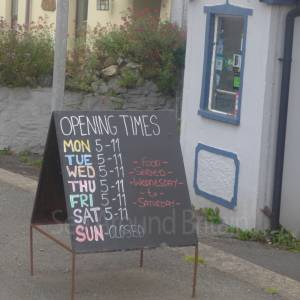 OPENING TIMES
MON 5-11
TUE 5-11
WED 5-11
THU 5-11
FRI 5-11
SAT 5-11
SUN-CLOSED
- FOOD -
SERVED
-WEDNESDAY-
- to -
SATURDAY-